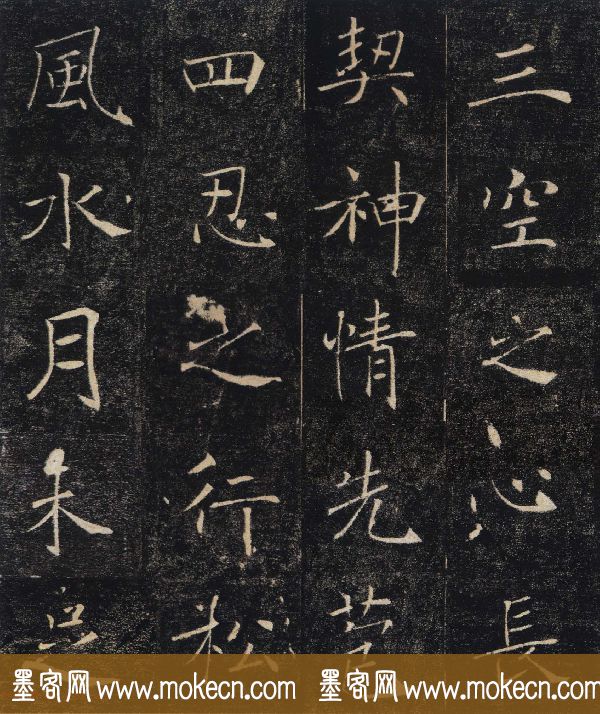 三空之心長
契神情先苞
四忍之行松
風水月未足
墨客网 www.mokecn.com 墨客网 www.mokecn.com